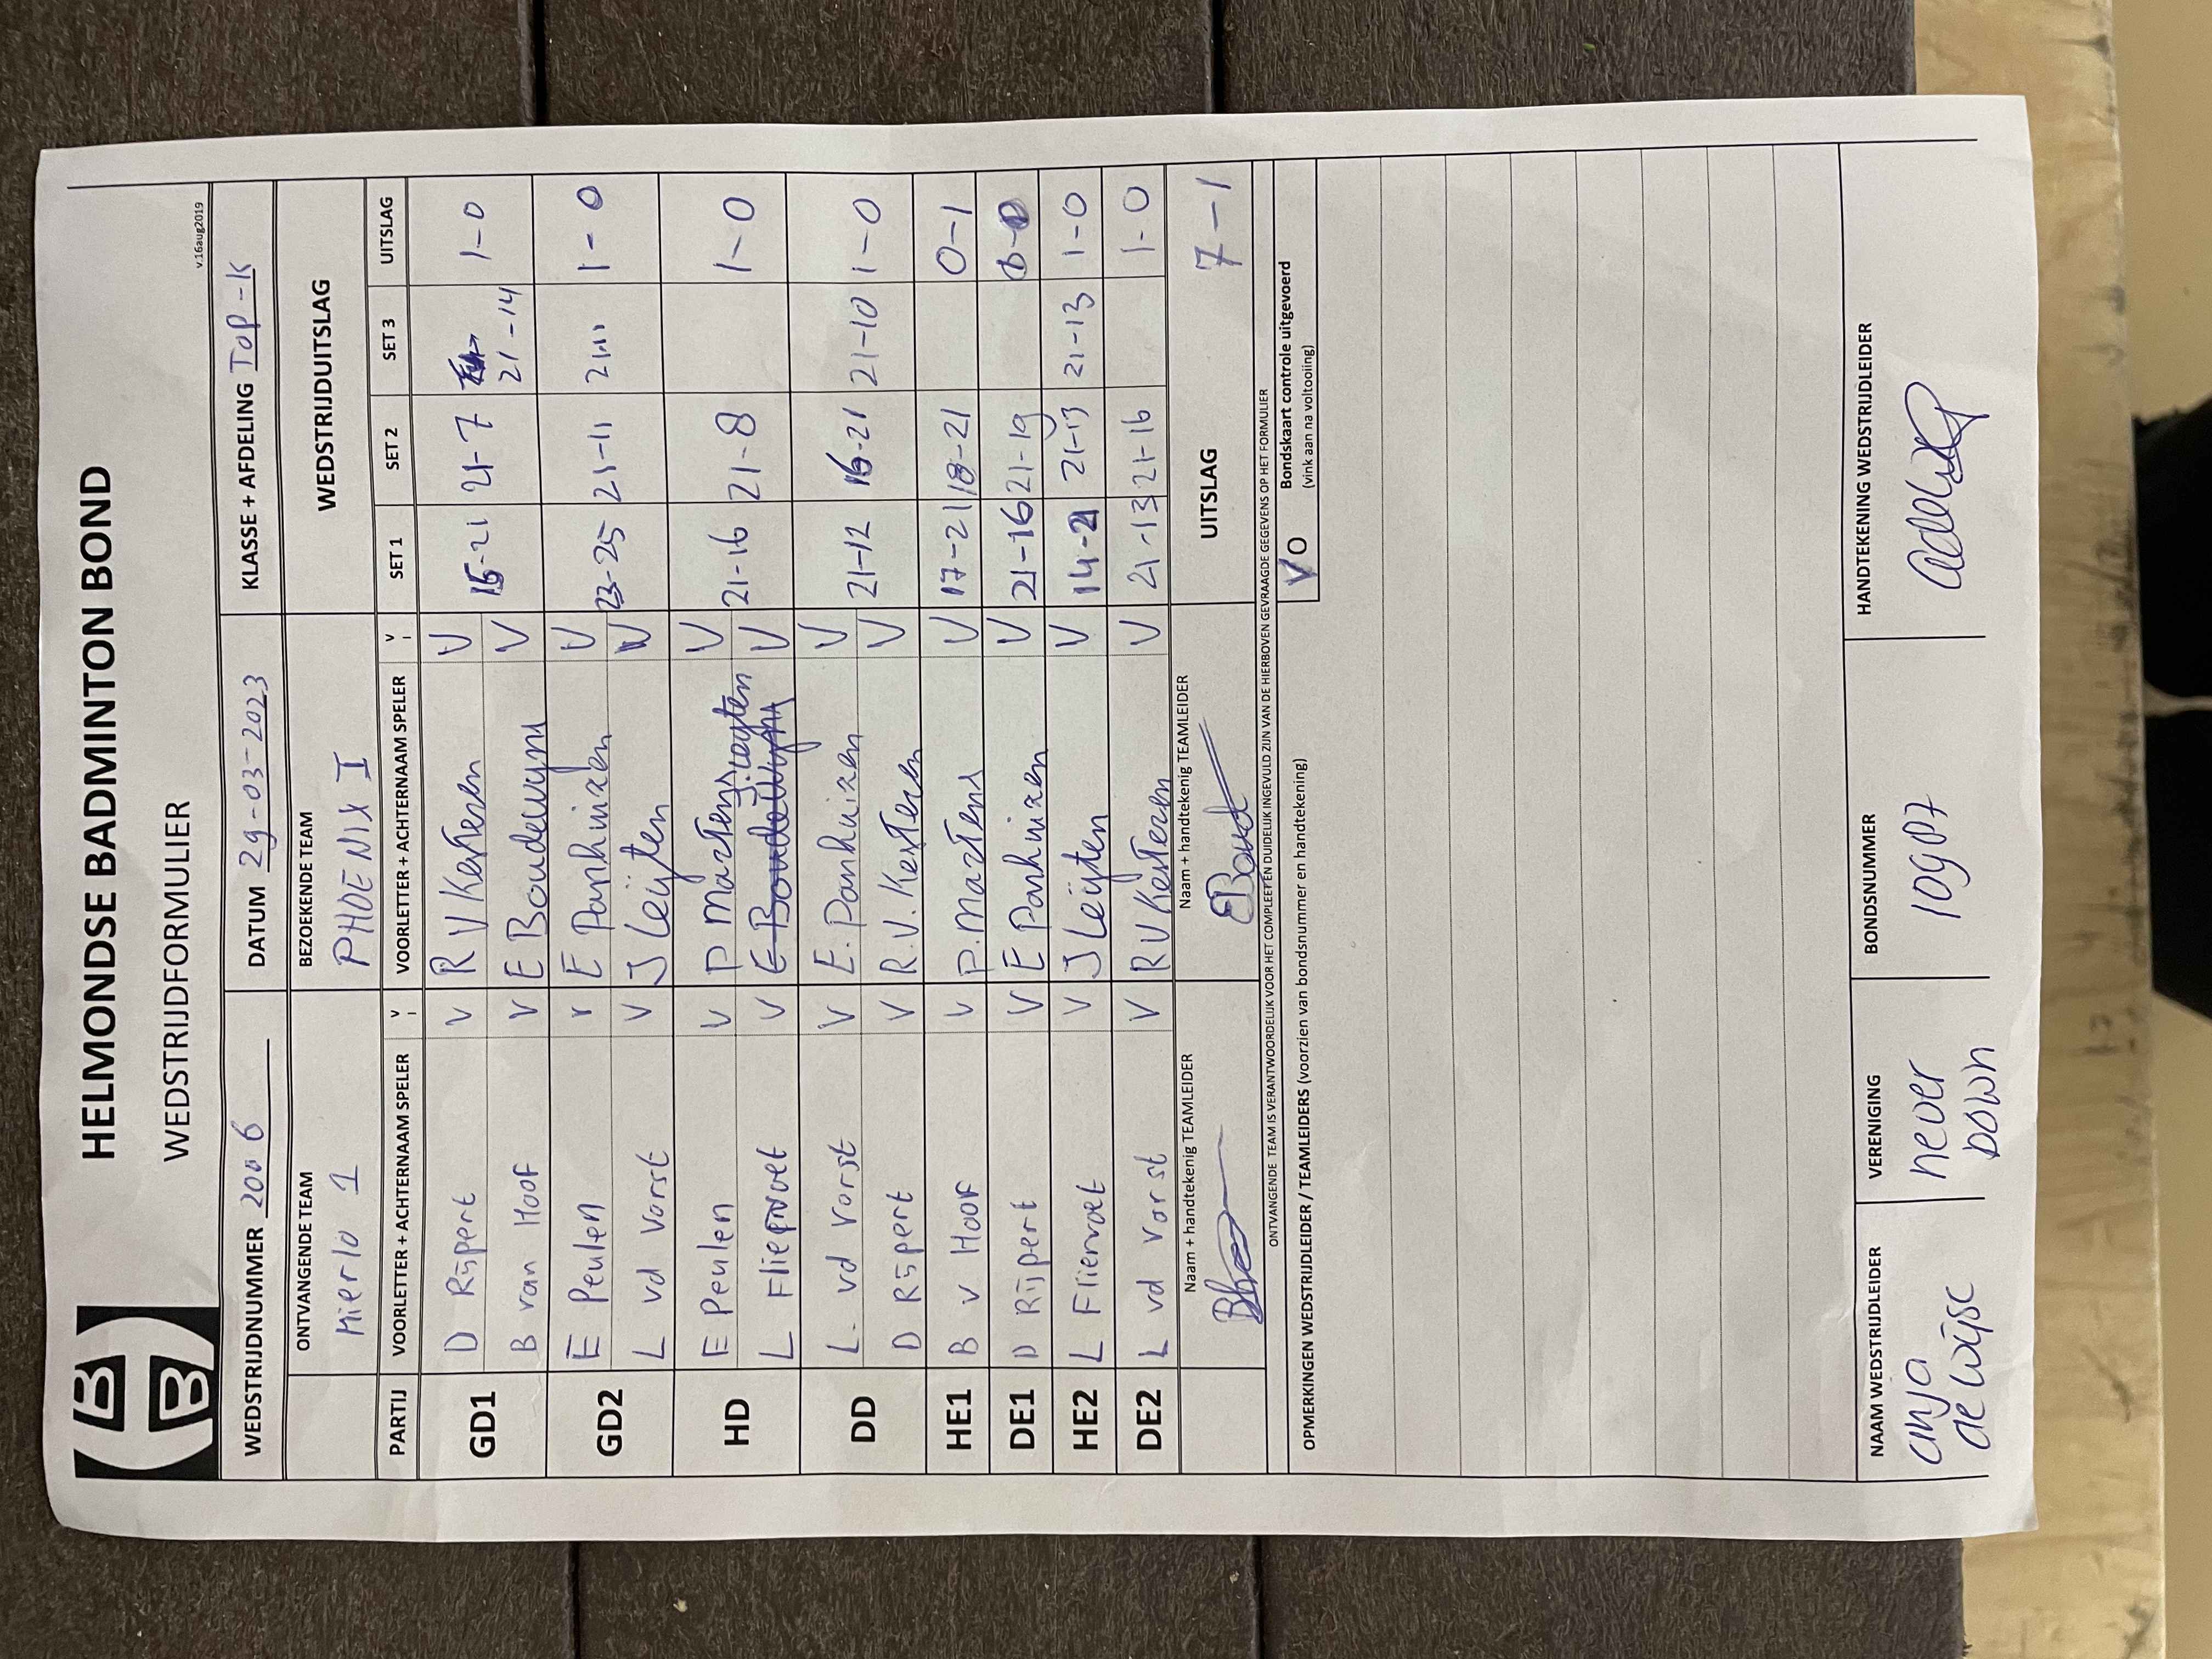 HELMONDSE BADMINTON BOND
WEDSTRIJDFORMULIER
v.16aug2019
WEDSTRIJDNUMMER 2006 DATUM 29-03-2023 KLASSE + AFDELING TOP-K
ONTVANGENDE TEAM BEZOEKENDE TEAM WEDSTRIJDUITSLAG
Mierlo 1 PHOENIX I
PARTIJ VOORLETTER + ACHTERNAAM SPELER V VOORLETTER + ACHTERNAAM SPELER V SET 1 SET 2 SET 3 UITSLAG
GD1 D Rijpert V R V Kesteren V 15-21 21-7 21-14 1-0
B van Hoof V E Boudewyns V
GD2 E Peulen V E Panhuizen V 23-25 21-11 21-11 1-0
L vd Vorst V J Leijten V
HD E Peulen V P Martens V 21-16 21-8 1-0
L Fliervoet V E Boudewyns J. Leyten V
DD L. vd Vorst V E. Panhuizen V 21-12 16-21 21-10 1-0
D Rijpert V R.V. Kesteren V
HE1 B v Hoof V P. Martens V 17-21 18-21 0-1
DE1 D Rijpert V E Panhuizen V 21-16 21-19
HE2 L Fliervoet V J Leijten V 14-21 21-13 21-13 1-0
DE2 L vd Vorst V R V Kesteren V 21-13 21-16 1-0
Naam + handtekenig TEAMLEIDER Naam + handtekenig TEAMLEIDER UITSLAG 7-1
EBoud
ONTVANGENDE TEAM IS VERANTWOORDELIJK VOOR HET COMPLEET EN DUIDELIJK INGEVULD ZIJN VAN DE HIERBOVEN GEVRAAGDE GEGEVENS OP HET FORMULIER
OPMERKINGEN WEDSTRIJDLEIDER / TEAMLEIDERS (voorzien van bondsnummer en handtekening) V O Bondskaart controle uitgevoerd
(vink aan na voltooiing)
NAAM WEDSTRIJDLEIDER VERENIGING BONDSNUMMER HANDTEKENING WEDSTRIJDLEIDER
anja never 10907
de wijse down